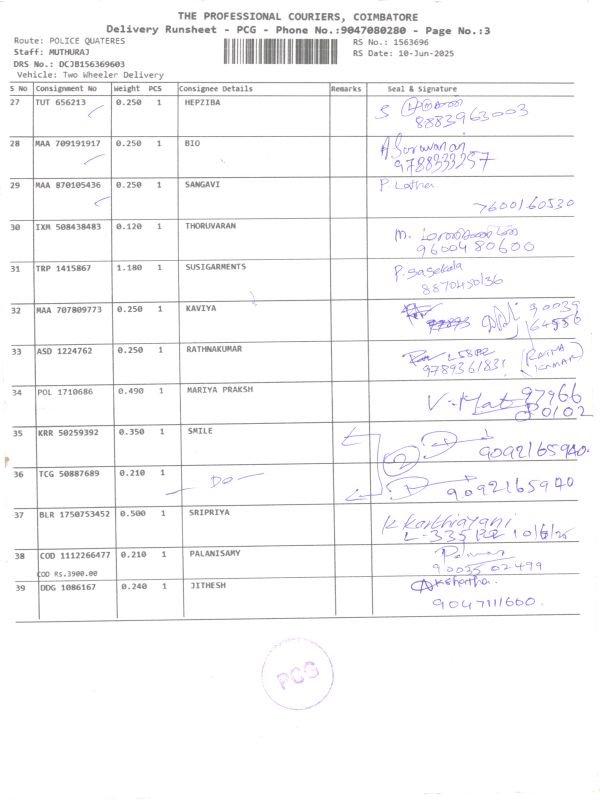 THE PROFESSIONAL COURIERS, COIMBATORE
Delivery Runsheet - PCG - Phone No.:9047080280 - Page No.:3
Route: POLICE QUATERES RS No.: 1563696
Staff: MUTHURAJ RS Date: 10-Jun-2025
DRS No.: DCJB156369603
Vehicle: Two Wheeler Delivery
S No Consignment No Weight PCS Consignee Details Remarks Seal & Signature
27 TUT 656213 0.250 1 HEPZIBA
8883963003
28 MAA 709191917 0.250 1 BIO A Saravanan
9788333257
29 MAA 870105436 0.250 1 SANGAVI P Latha
7600160530
30 IXM 508438483 0.120 1 THORUVARAN M.
9600480600
31 TRP 1415867 1.180 1 SUSIGARMENTS P. Sasekala
8870450136
32 MAA 707809773 0.250 1 KAVIYA 90039
64556
33 ASD 1224762 0.250 1 RATHNAKUMAR
9789361831
34 POL 1710686 0.490 1 MARIYA PRAKSH 97966
80102
35 KRR 50259392 0.350 1 SMILE
9092165940.
36 TCG 50887689 0.210 1 - DO - 2
9092165940
37 BLR 1750753452 0.500 1 SRIPRIYA K Karthiayani
L-335 10/6/25
38 COD 1112266477 0.210 1 PALANISAMY
COD Rs.3900.00 90035 02499
39 DDG 1086167 0.240 1 JITHESH Akshatha.
9047111600.
PCG